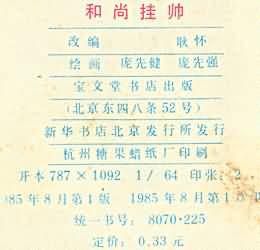 和尚挂帅
改编 耿怀
绘画 庞先健 庞先强
宝文堂书店出版
(北京东四八条52号)
新华书店北京发行所发行
杭州糖果蜡纸厂印刷
开本787×1092 1/64 印张:2
85年8月第1版 1985年8月第1
统一书号:8070·225
定价:0.33元